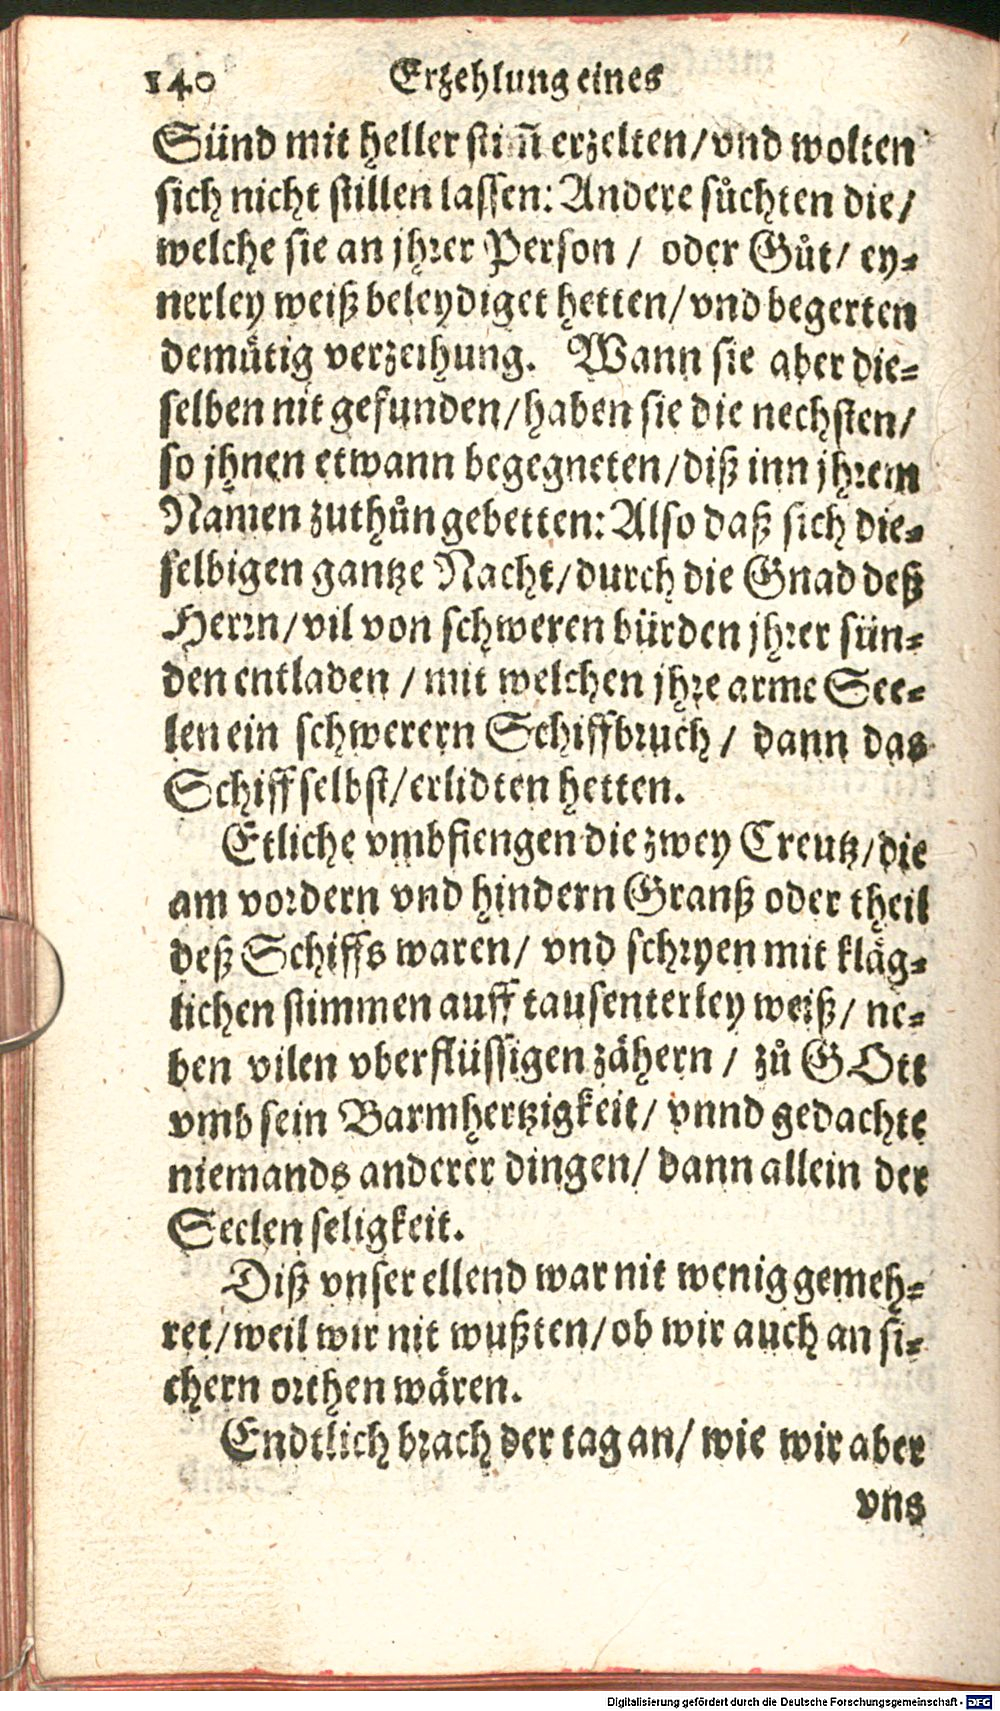 140 Erzehlung eines
Sünd mit heller stim̄ erzelten/vnd wolten
sich nicht stillen lassen: Andere sůchten die/
welche sie an jhrer Person / oder Gůt/ ey⸗
nerley weiß beleydiget hetten/vnd begerten
demütig verzeihung. Wann sie aber die⸗
selben nit gefunden/haben sie die nechsten/
so jhnen etwann begegneten/diß inn jhrem
Namen zuthůn gebetten: Also daß sich die⸗
selbigen gantze Nacht/durch die Gnad deß
Herrn/vil von schweren bürden jhrer sün⸗
den entladen / mit welchen jhre arme See⸗
len ein schwerern Schiffbruch / dann das
Schiff selbst/erlidten hetten.
Etliche vmbfiengen die zwey Creutz/die
am vordern vnd hindern Granß oder theil
deß Schiffs waren/ vnd schryen mit kläg⸗
lichen stimmen auff tausenterley weiß/ ne⸗
ben vilen vberflüssigen zähern / zů GOtt
vmb sein Barmhertzigkeit/ vnnd gedachte
niemands anderer dingen/ dann allein der
Seelen seligkeit.
Diß vnser ellend war nit wenig gemeh⸗
ret/weil wir nit wußten/ob wir auch an si⸗
chern orthen wären.
Endtlich brach der tag an/ wie wir aber
vns
Digitalisierung gefördert durch die Deutsche Forschungsgemeinschaft - DFG